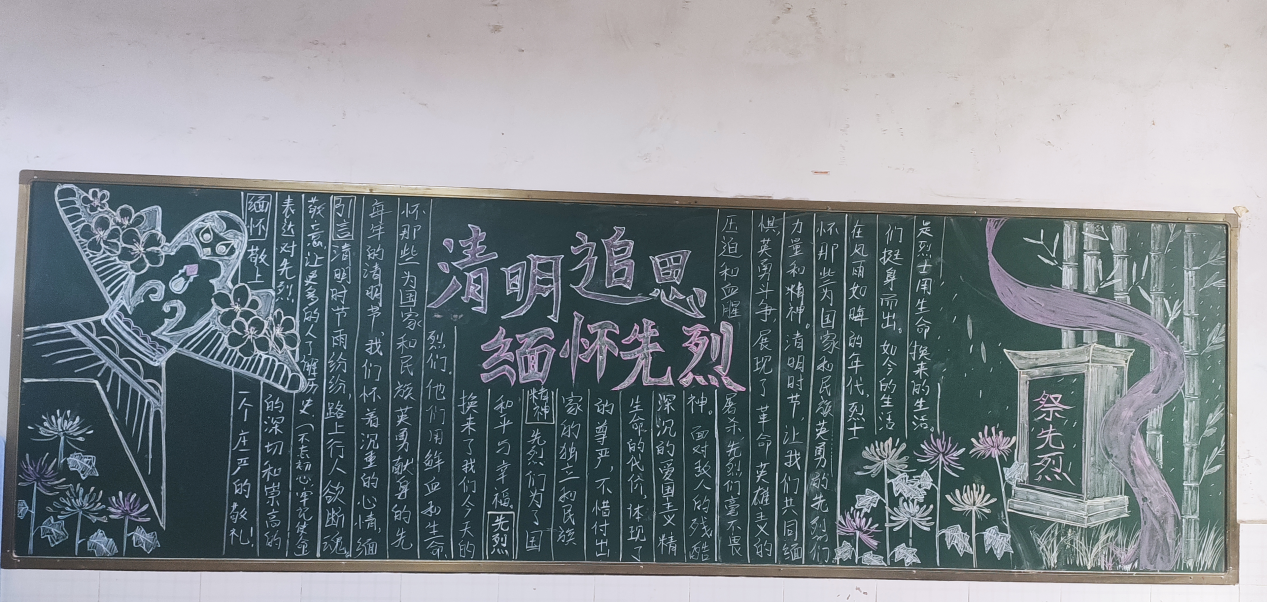 清明追思
缅怀先烈
缅怀敬上
一个庄严的敬礼！
表达对先烈
的深切和崇高的
敬意，让更多的人了解历史（不忘初心，牢记使命
引言 清明时节雨纷纷，路上行人欲断魂
每年的清明节，我们怀着沉重的心情，缅
怀那些为国家和民族英勇献身的先
烈们。他们用鲜血和生命
换来了我们今天的
和平与幸福。先烈
精神 先烈们为了国
家的独立和民族
的尊严，不惜付出
生命的代价，体现了
深沉的爱国主义精
神。面对敌人的残酷
压迫和血腥屠杀，先烈们毫不畏
惧，英勇斗争，展现了革命英雄主义的
力量和精神。清明时节，让我们共同缅
怀那些为国家和民族英勇的先烈们
在风雨如晦的年代，烈士
们挺身而出。如今的生活
是烈士用生命换来的生活。
祭先烈